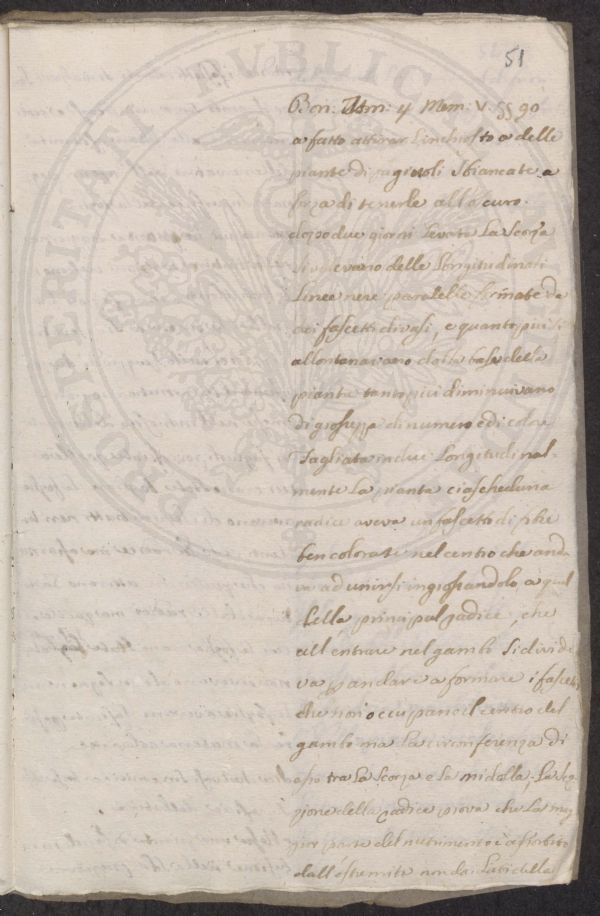 51
Bon: Mem: V. §§ 90
a fatto attirar l'inchiostro a delle
piante di fagioli sbiancate a
forza di tenerle all'oscuro.
dopo due giorni levata la scorza
si vedevano delle longitudinali
linee nere parallele formate da
dei fascetti di vasi, e quanto più si
allontanavano dalla base della
pianta tanto più diminuivano
di grossezza di numero e di color
Tagliata in due longitudinal-
mente la pianta ciascheduna
radice aveva un fascetto di fibre
ben colorate nel centro che anda
va ad unirsi ingrossandolo a quel
della principal radice, che
all'entrare nel gambo si divide
va p andare a formare i fascetti
che non occupano il centro del
gambo ma la circonferenza di
esso tra la scorza e la midolla, La se
zione della radice prova che la mag
gior parte del nutrimento è assorbito
dall'estremità non dai lati della
PROSPERITATI PVBLICAE